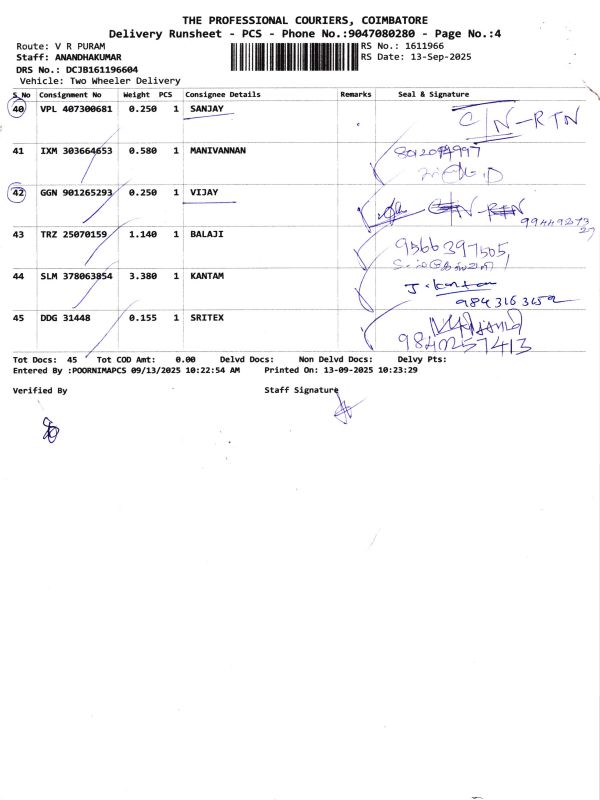 THE PROFESSIONAL COURIERS, COIMBATORE
Delivery Runsheet - PCS - Phone No.:9047080280 - Page No.:4
Route: V R PURAM
RS No.: 1611966
Staff: ANANDHAKUMAR
RS Date: 13-Sep-2025
DRS No.: DCJB161196604
Vehicle: Two Wheeler Delivery
S.No Consignment No Weight PCS Consignee Details Remarks Seal & Signature
40 VPL 407300681 0.250 1 SANJAY C/N-RTN
41 IXM 303664653 0.580 1 MANIVANNAN
42 GGN 901265293 0.250 1 VIJAY
43 TRZ 25070159 1.140 1 BALAJI 9566397505
44 SLM 378063854 3.380 1 KANTAM J. kantam
45 DDG 31448 0.155 1 SRITEX
9840257413
Tot Docs: 45 Tot COD Amt: 0.00 Delvd Docs: Non Delvd Docs: Delvy Pts:
Entered By :POORNIMAPCS 09/13/2025 10:22:54 AM Printed On: 13-09-2025 10:23:29
Verified By Staff Signature